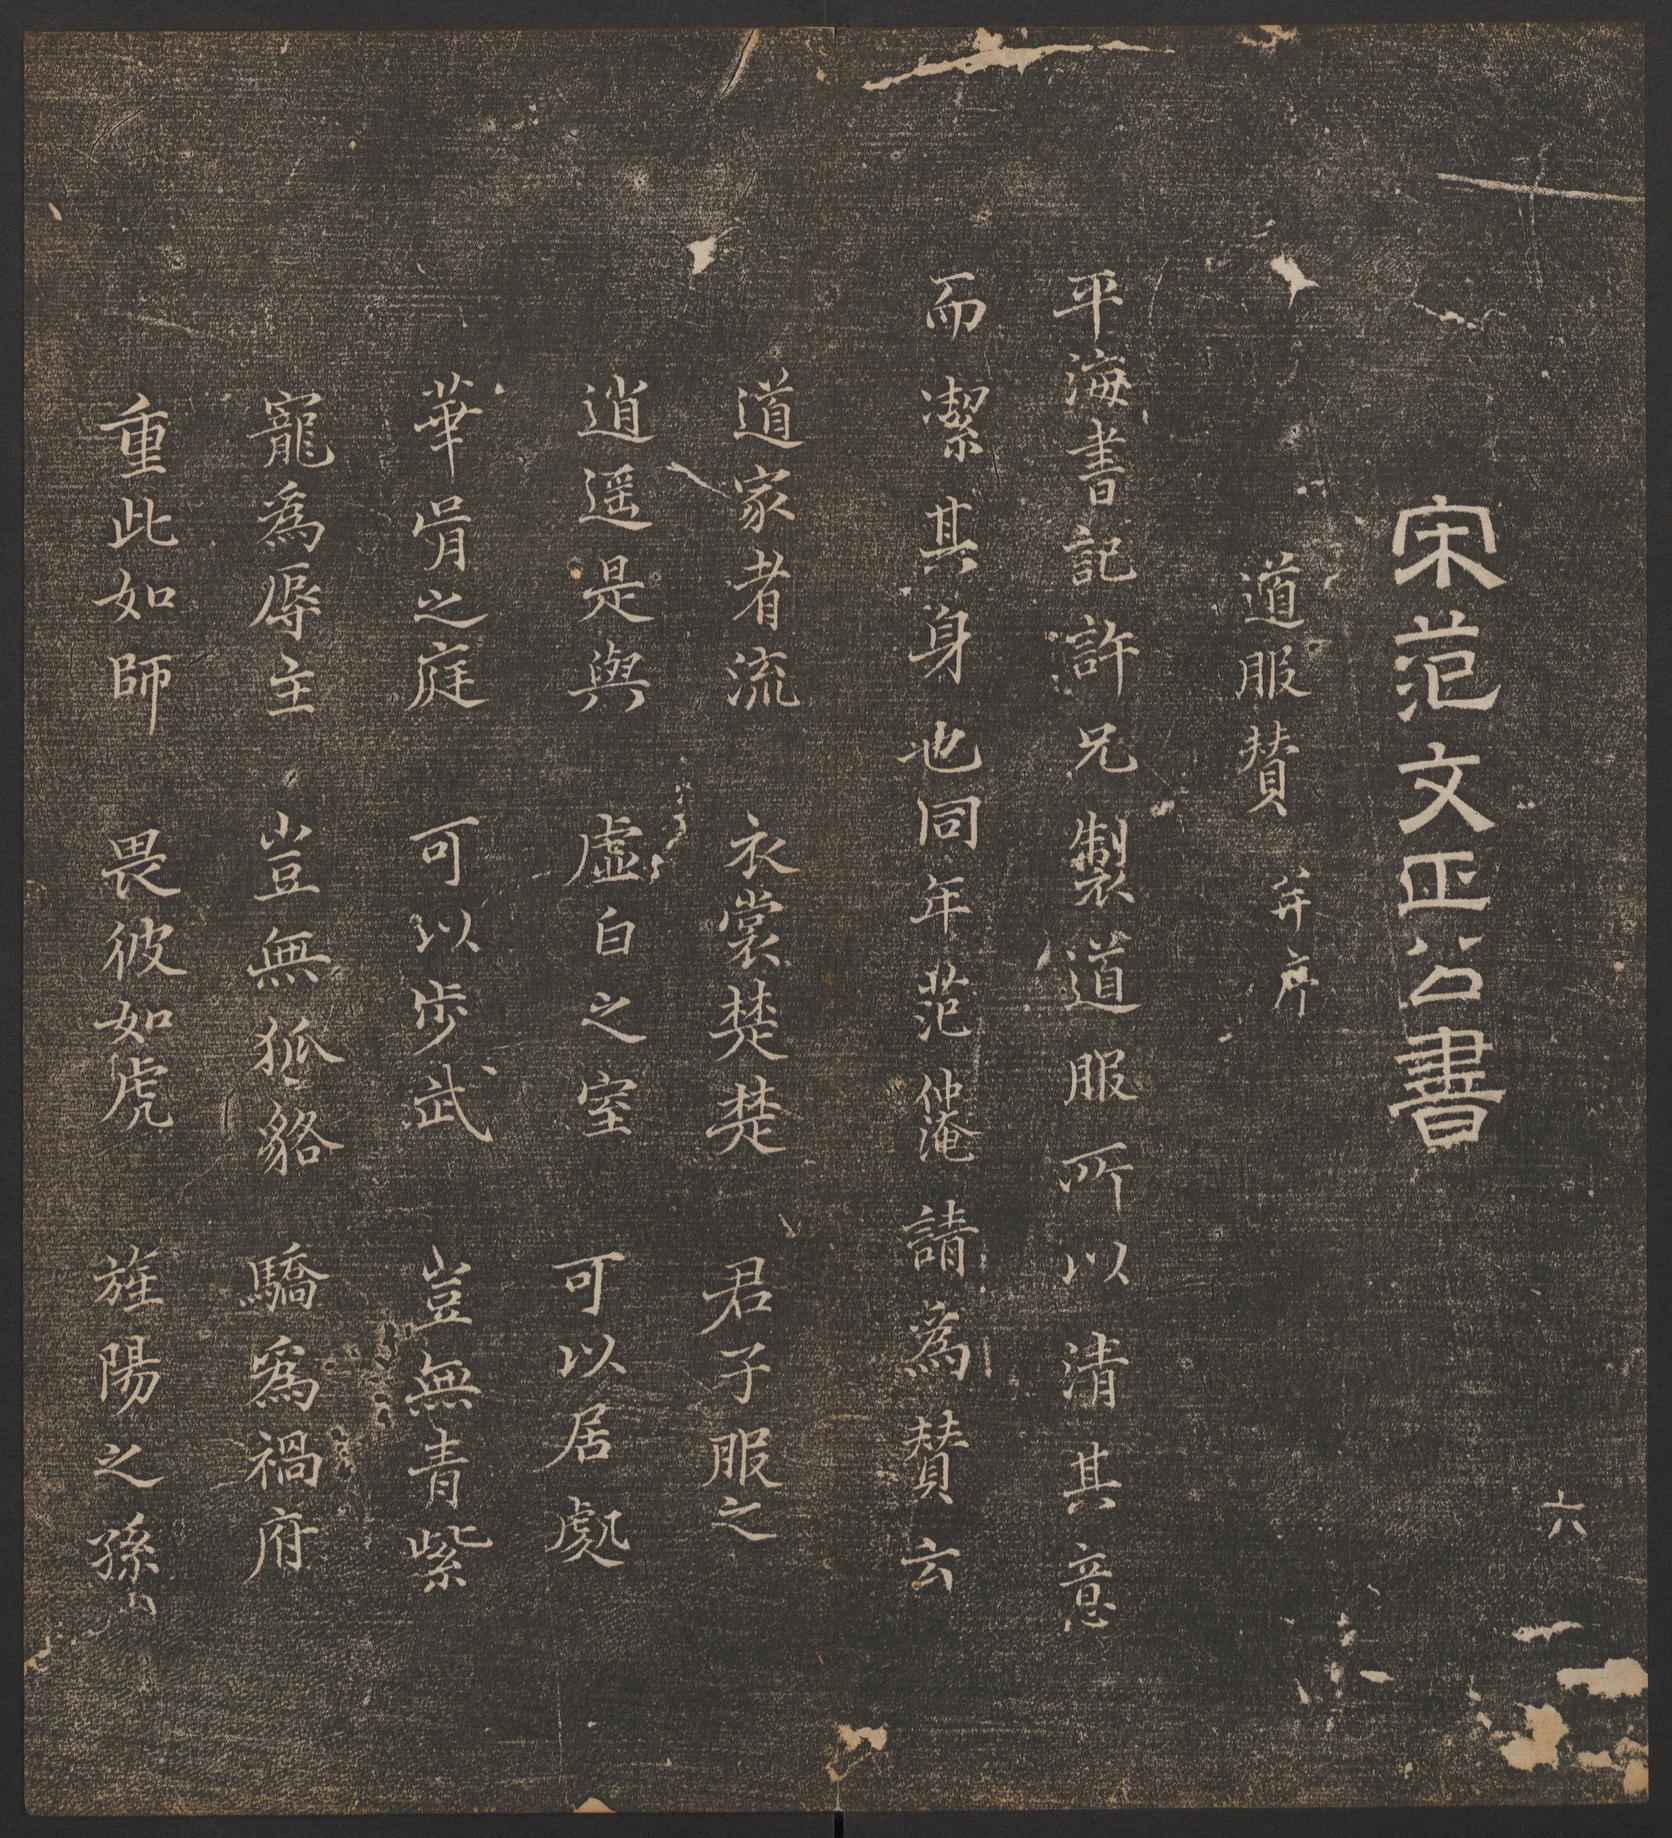 六
宋范文正公書
道服赞 并序
平海書記許兄製道服所以清其意
而潔其身也同年范仲淹請為赞云
道家者流 衣裳楚楚 君子服之
逍遥是與 虚白之室 可以居處
華胥之庭 可以步武 豈無青紫
寵為辱主 豈無狐貉 驕為禍府
重此如師 畏彼如虎 旌陽之孫